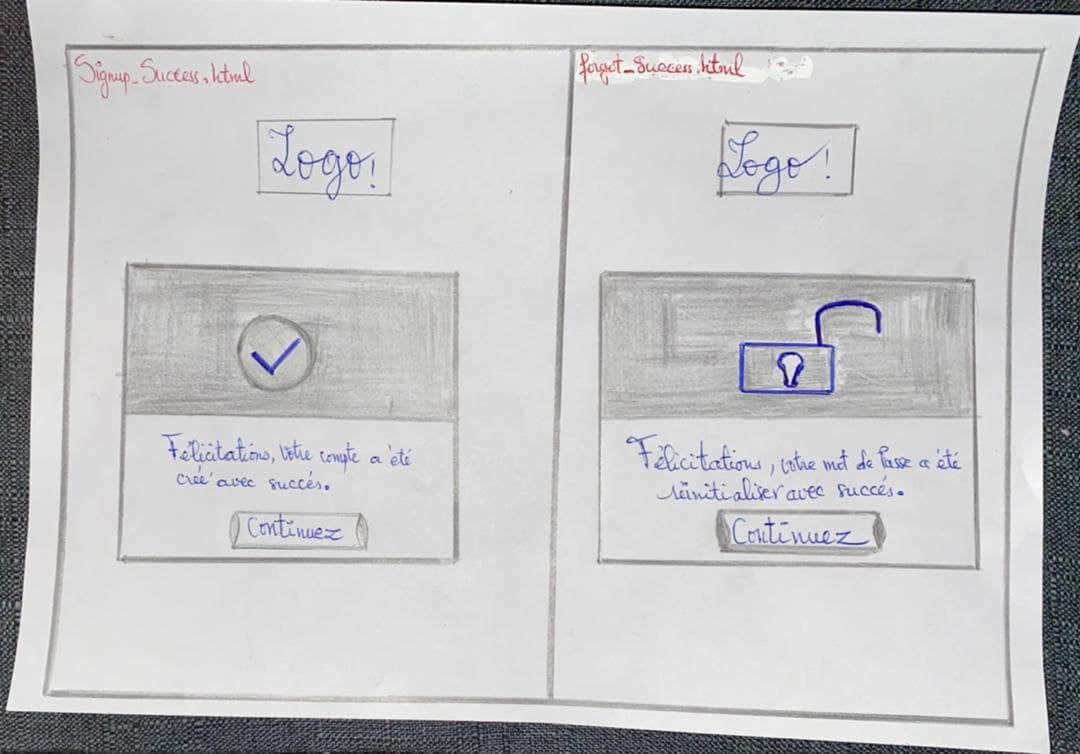 Signup_Success.html
Logo!
Félicitations, Votre compte a été
créé avec succés.
Continuez
forgot_Success.html
Logo!
Félicitations, votre mot de Passe a été
réinitialiser avec succés.
Continuez